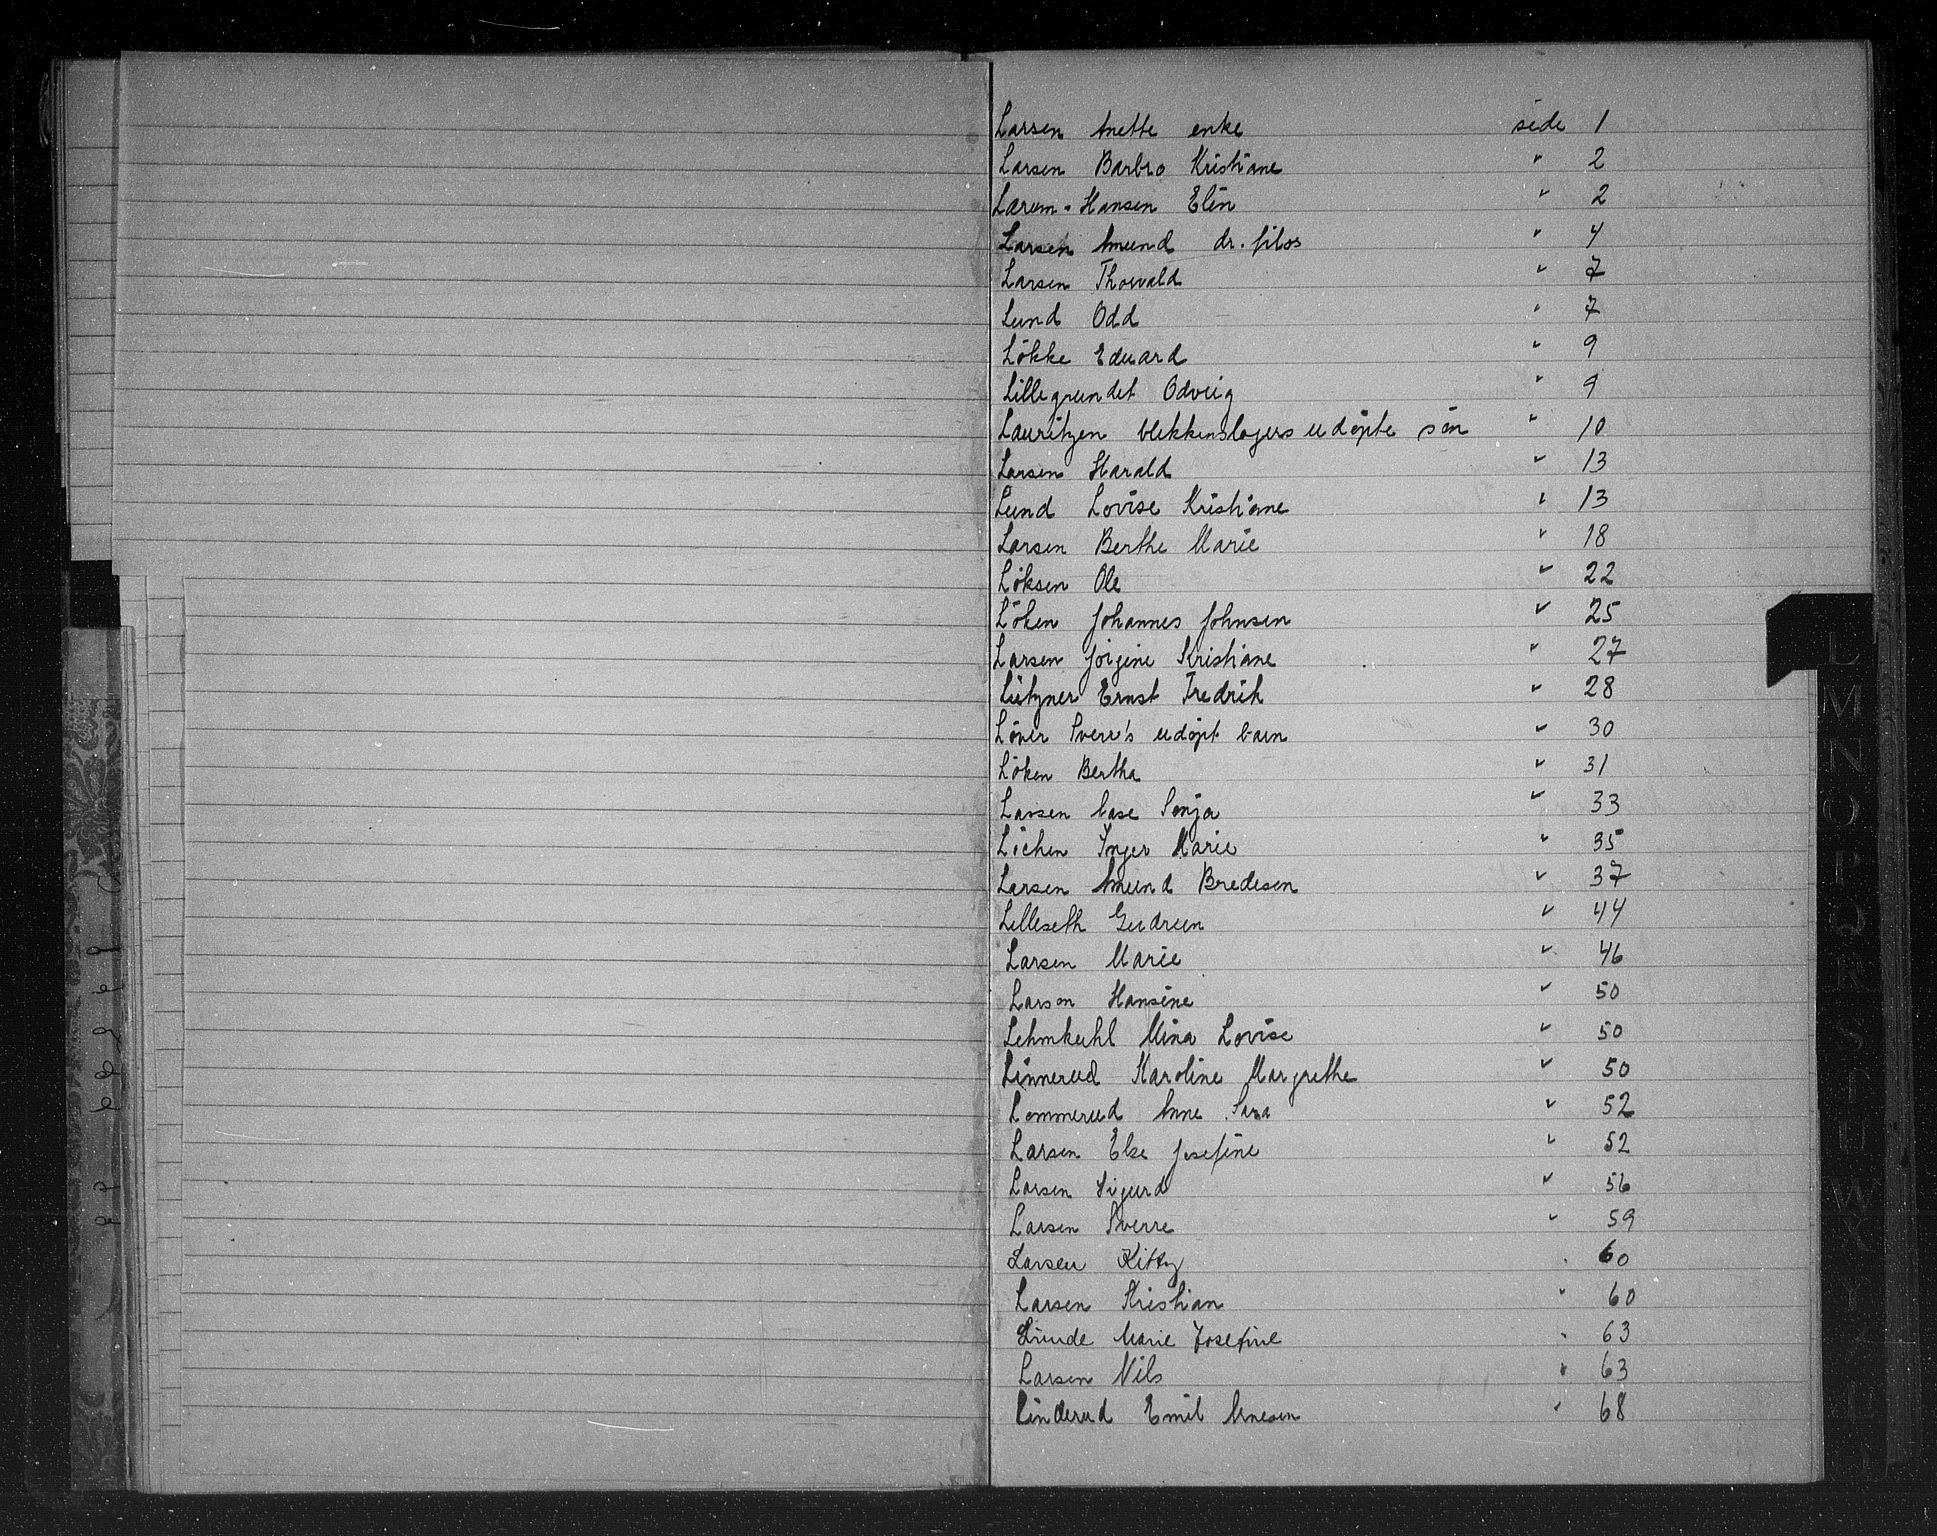 Larsen Anette enke side 1
Larsen Barbro Kristiane " 2
Larum-Hansen Elin " 2
Larsen Amund dr. filos " 4
Larsen Thorvald " 7
Lund Odd " 7
Lökke Eduard " 9
Lillegrundet Odveig " 9
Lauritzen blikkenslagers udöpte sön " 10
Larsen Harald " 13
Lund Lovise Kristiane " 13
Larsen Berthe Marie " 18
Löksen Ole " 22
Löken Johannes Johnsen " 25
Larsen Jörgine Kristiane " 27
Lützner Ernst Fredrik " 28
Löver Sverre's udöpt barn " 30
Löken Bertha " 31
Larsen Aase Sonja " 33
Löchen Inger Marie " 35
Larsen Amund Bredesen " 37
Lilleseth Gudrun " 44
Larsen Marie " 46
Larson Hansine " 50
Lehmkuhl Mina Lovise " 50
Linnerud Karoline Margrethe " 50
Lommerud Anne Sara " 52
Larsen Else Josefine " 52
Larsen Sigurd " 56
Larsen Sverre " 59
Larsen Kitty " 60
Larsen Kristian " 60
Linde Marie Josefine " 63
Larsen Nils " 63
Linderud Emil Arnesen " 68
L
M
N
O
P
Q
R
S
T
U
W
X